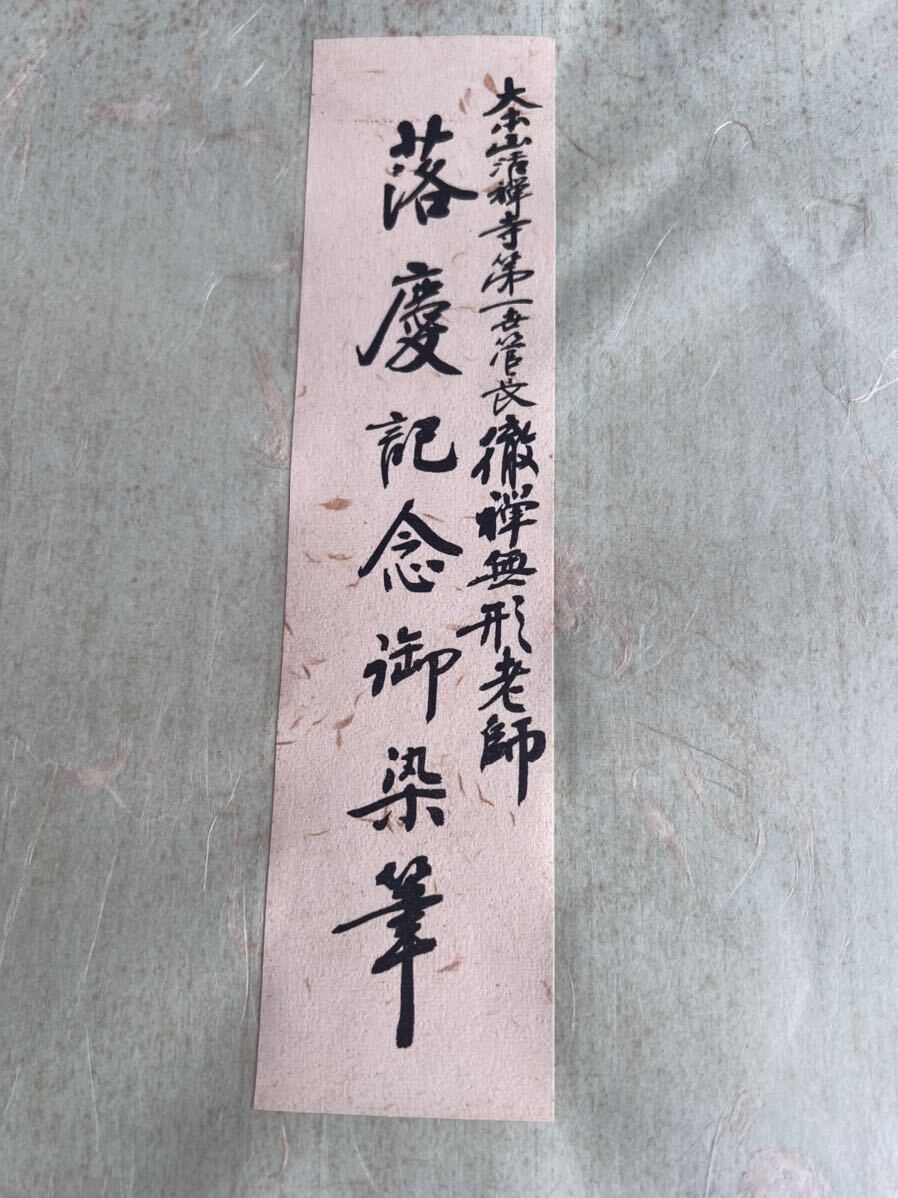 大本山活禅寺第一世管長徹禅無形老師
落慶記念御染筆